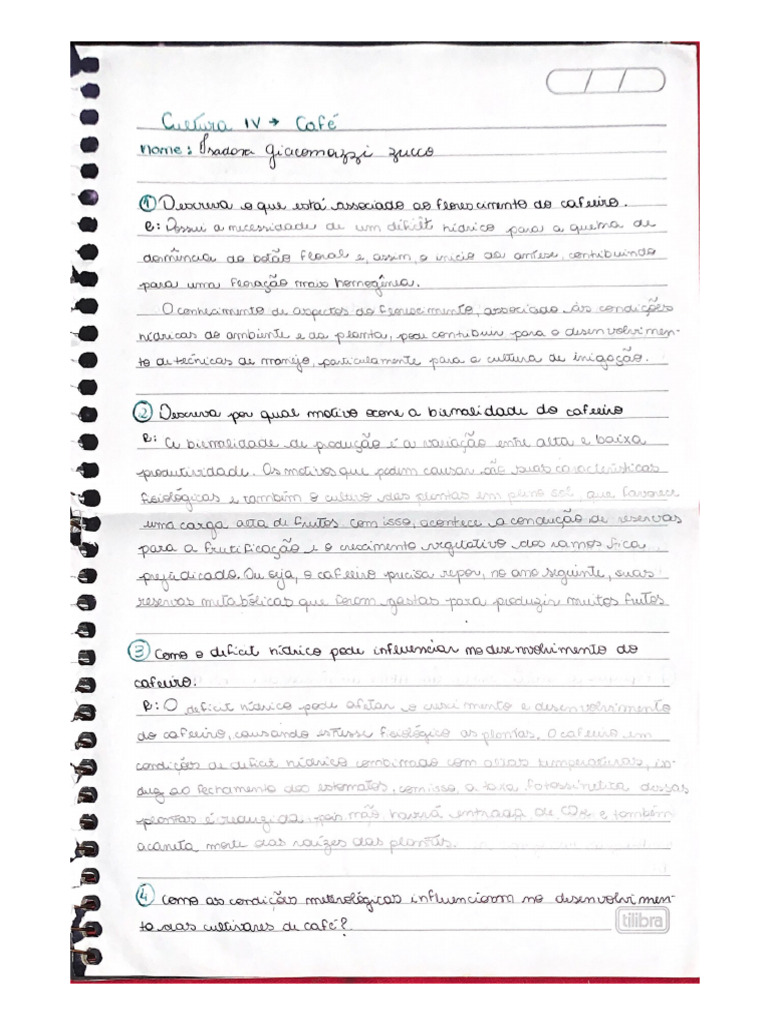 Cultura IV → Café
Nome: Isadora Giacomazzi Zucco
① Descreva o que está associado ao florescimento do cafeeiro.
R: Possui a necessidade de um déficit hídrico para a quebra de
dormência do botão floral e, assim, o inicio da antese, contribuindo
para uma floração mais homogênia.
O conhecimento de aspectos do florescimento, associado às condições
hídricas do ambiente e da planta, pode contribuir para o desenvolvimen-
to de técnicas de manejo, particulamente para a cultura de irrigação.
② Descreva por qual motivo ocorre a bienalidade do cafeeiro
R: A bienalidade de produção é a variação entre alta e baixa
produtividade. Os motivos que podem causar são suas características
fisiológicas e também o cultivo das plantas em pleno sol, que favorece
uma carga alta de frutos. com isso, acontece a condução de reservas
para a frutificação e o crescimento vegetativo dos ramos fica
prejudicado. Ou seja, o cafeeiro precisa repor, no ano seguinte, suas
reservas metabólicas que foram gastas para produzir muitos frutos
③ Como o deficit hídrico pode influenciar no desenvolvimento do
cafeeiro.
R: O deficit hídrico pode afetar o crescimento e desenvolvimento
do cafeeiro, causando estresse fisiológico as plantas. O cafeeiro em
condições de deficit hídrico combinado com altas temperaturas, in-
duz ao fechamento dos estomatos, com isso, a taxa fotossintética dessas
plantas é reduzida pois não haverá entrada de CO2 e também
acarreta morte das raízes das plantas.
④ Como as condição metrológicas influenciam no desenvolvimen-
to das cultivares de café?
tilibra